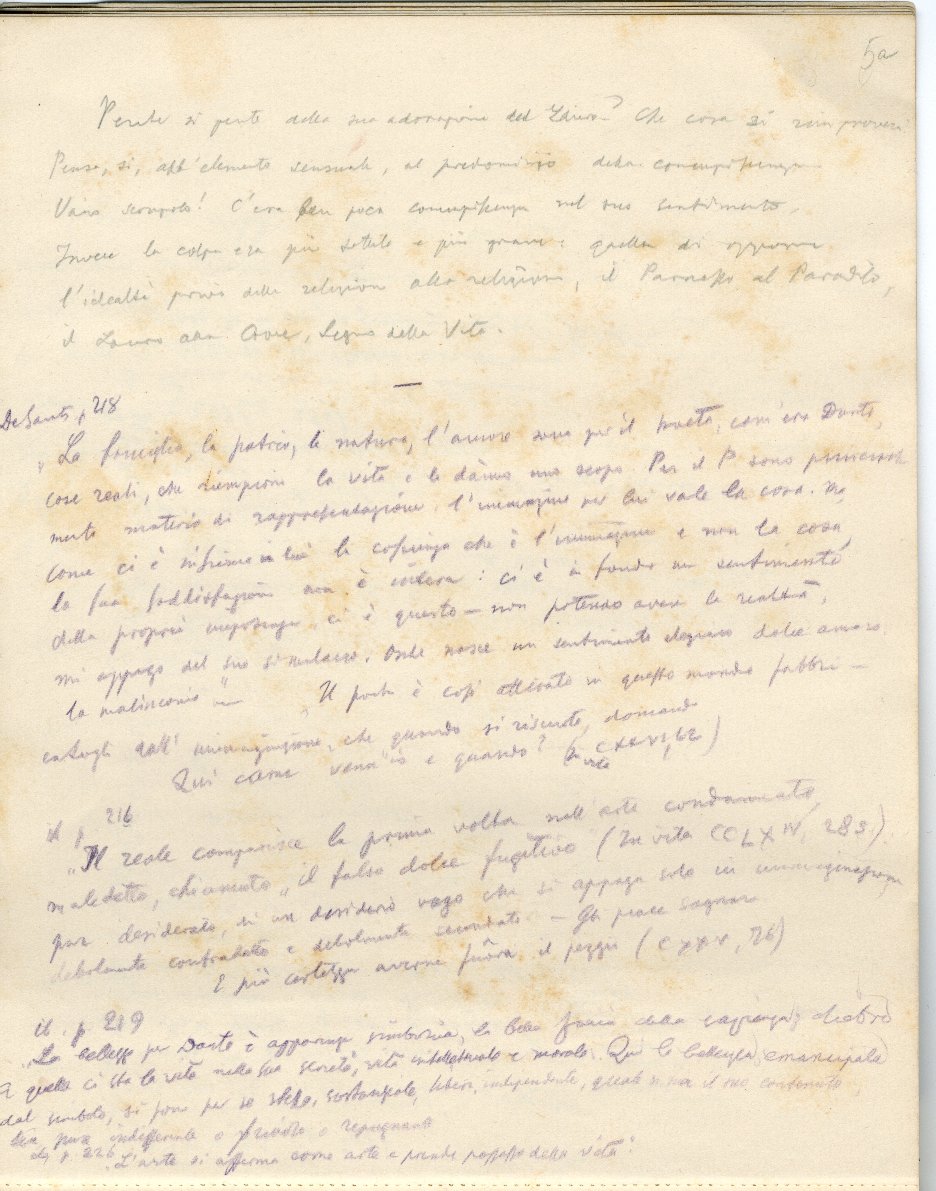 5a
si pente della sua adorazione del Lauro? Che cosa si rimprovera
Pensa, sì, all'elemento sensuale, al predominio della concupiscenza
Vano scrupolo! C'era ben poca concupiscenza nel suo sentimento.
Invece la colpa era più sottile e più grave: quella di opporre
l'idealtà della religione alla religione, il Parnasso al Paradiso,
il Lauro alla Croce, Segno della Vita.
—
De Sanct. p. 218
„La famiglia, la patria, la natura, l'amore sono per il poeta, com'era Dante,
cose reali, che riempiono la vita e le danno uno scopo. Per il P sono principal
mente materia di rappresentazione: l'immagine per lui vale la cosa. Ma
come ci è insieme in lui la coscienza che è l'immagine e non la cosa,
la sua soddisfazione non è intera: ci è in fondo un sentimento
della propria impotenza, ci è questo — non potendo avere la realtà,
mi appago del suo simulacro. Onde nasce un sentimento elegiaco dolce amaro
la malinconia" Il poeta è così attirato in questo mondo fabbri-
catogli dall'immaginazione, che quando si riscuote, domanda
Qui come venn'io e quando? (In vita CXXVI, 62)
id p. 216
„Il reale comparisce la prima volta nell'arte condannato,
maledetto, chiamato „il falso dolce fugitivo (In vita CCLXIV, 28 s.).
pur desiderato, di un desiderio vago che si appaga solo in immaginazione
debolmente contradetto e debolmente secondato — Gli piace sognare
E più certezza averne fôra il peggio (CXXV, 76)
id. p. 219
„La bellezza per Dante è apparenza simbolica, la bella faccia della sapienza; dietro
a quella ci sta la vita nella sua serietà, vita intellettuale e morale. Qui la bellezza, emancipata
dal simbolo, si pone per se stessa, sostanziale, libera, independente, quale si sia il suo contenuto,
sia pure indifferente o frivolo o repugnante
id. p. 226 „L'arte si afferma come arte e prende possesso della vita".